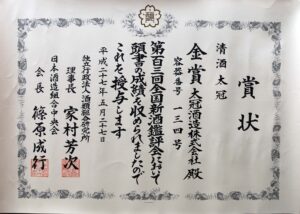 賞状
清酒 太冠
金賞 太冠酒造株式会社殿
容器番号 一三四号
第百三回全国新酒鑑評会において
頭書の成績を収められましたので
これを授与します
平成二十七年五月二十七日
独立行政法人酒類総合研究所
理事長 家村芳次
日本酒造組合中央会
会長 篠原成行